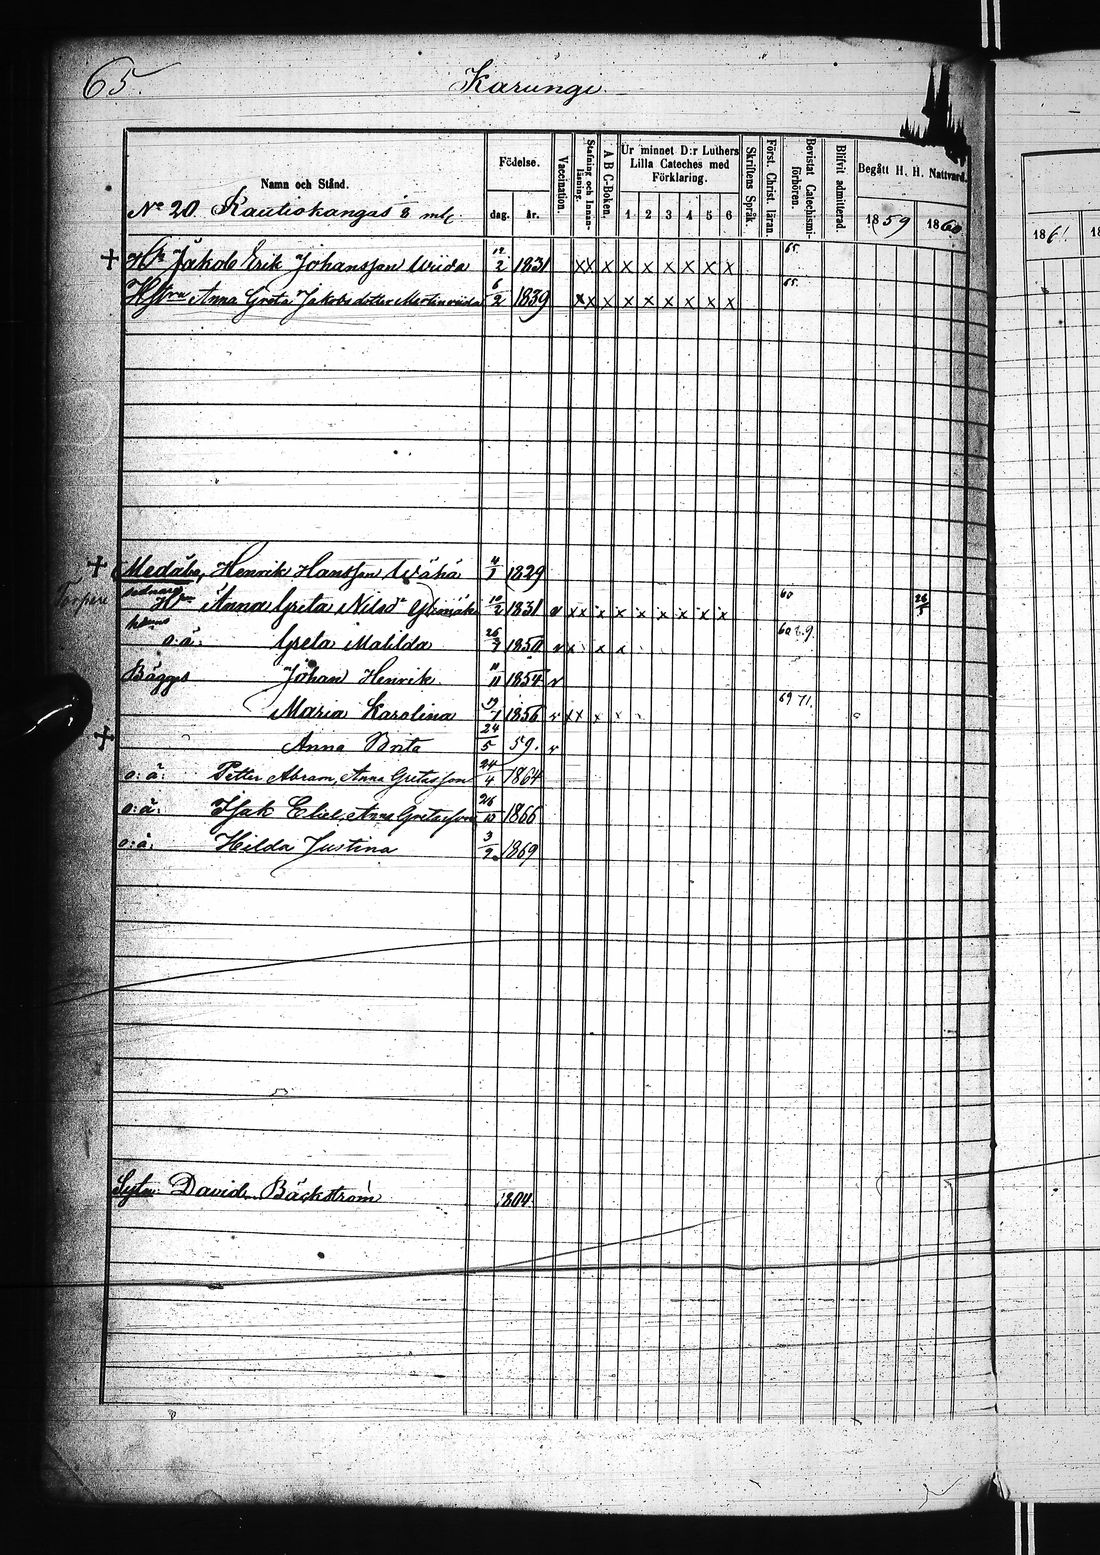 65.
Karungi.
Namn och Stånd.
Födelse.
dag. år.
Vaccination.
Stafning och Innanläsning.
A B C-Boken.
Ur minnet D:r Luthers Lilla Cateches med Förklaring.
1 2 3 4 5 6
Skriftens Språk.
Först. Christ. läran.
Bevistat Catechismiförhören.
Blifvit admitterad.
Begått H. H. Nattvard.
1859 1860 1861
No 20. Kautiokangas
Jakob Erik Johansson 12/2 1831 xx x x x x x x x 65.
Anna Greta Jakobsdotter 6/2 1839 xx x x x x x x x 65.
Henrik Hansson 1829
Anna Greta Nilsdr 10/2 1831 v xx x x x x x x x 60 26/5
o:ä: Greta Matilda 26/7 1850 v x x x
Johan Henrik 11/11 1854 v
Maria Karolina 1856 v xx x 69 71.
Anna Brita 24/5 59. v
o:ä: Petter Abram, Anna Gretasson 24/4 1864
o:ä: Isak Eliel, Anna Gretasson 26/10 1866
o:ä: Hilda Justina 3/9 1869
David Bäckström 1804.